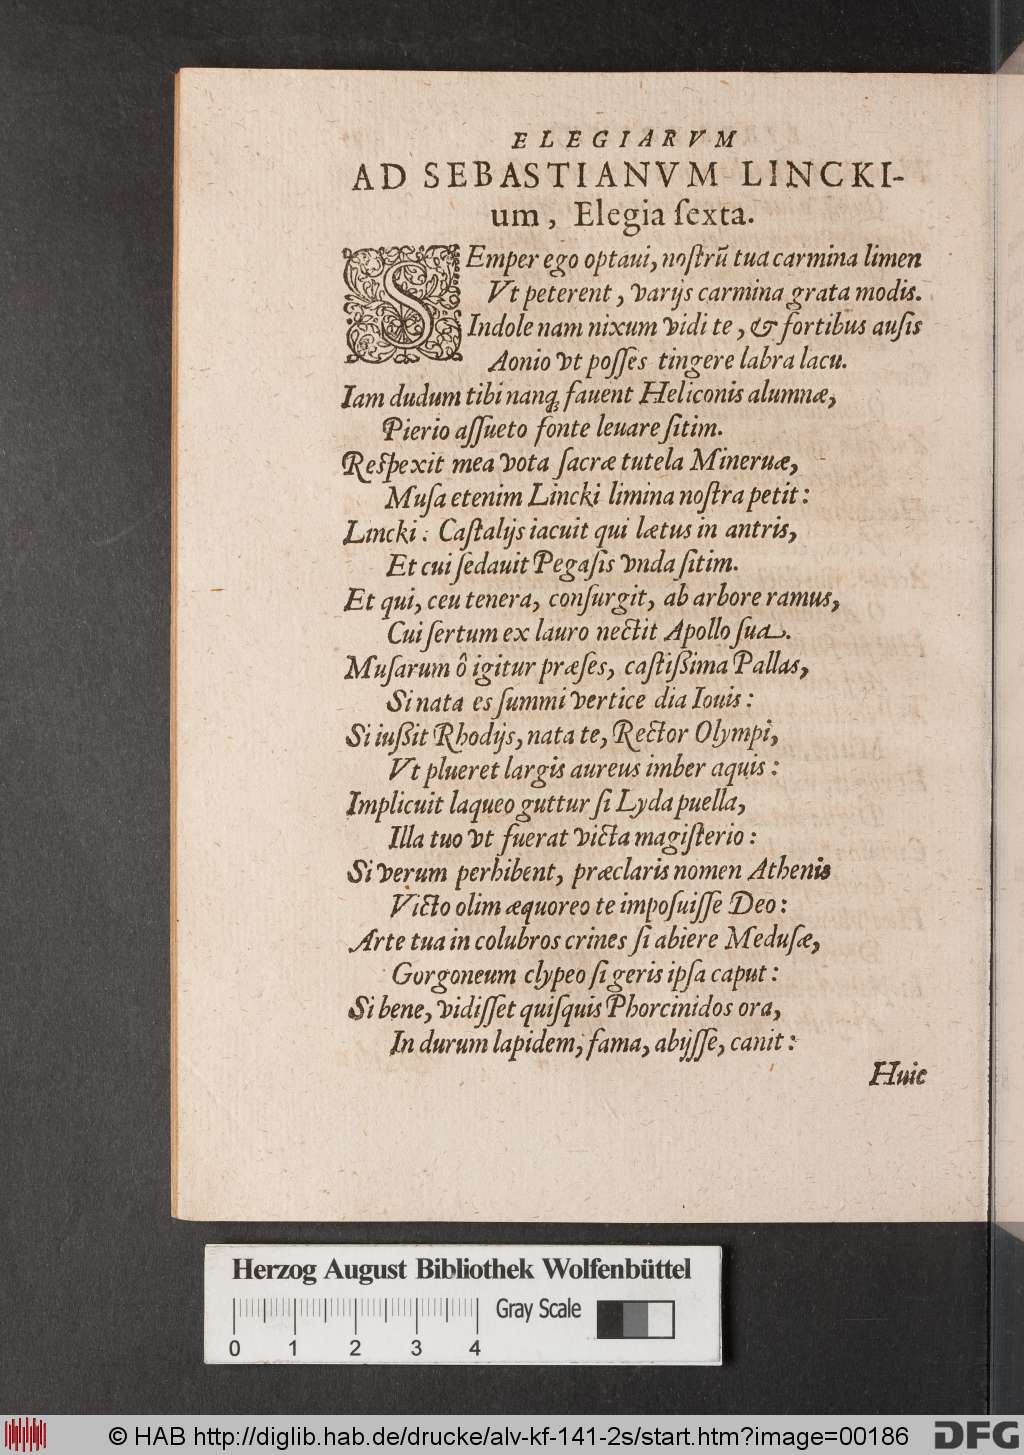 ELEGIARVM
AD SEBASTIANVM LINCKI-
um, Elegia ſexta.
SEmper ego optaui, noſtrũ tua carmina limen
Vt peterent, varijs carmina grata modis.
Indole nam nixum vidi te, & fortibus auſis
Aonio vt poſſes tingere labra lacu.
Iam dudum tibi nanq; fauent Heliconis alumnæ,
Pierio aſſueto fonte leuare ſitim.
Reſpexit mea vota ſacræ tutela Mineruæ,
Muſa etenim Lincki limina noſtra petit:
Lincki: Caſtalijs iacuit qui lætus in antris,
Et cui ſedauit Pegaſis vnda ſitim.
Et qui, ceu tenera, conſurgit, ab arbore ramus,
Cui ſertum ex lauro nectit Apollo ſua.
Muſarum ô igitur præſes, caſtißima Pallas,
Si nata es ſummi vertice dia Iouis:
Si iußit Rhodijs, nata te, Rector Olympi,
Vt plueret largis aureus imber aquis:
Implicuit laqueo guttur ſi Lyda puella,
Illa tuo vt fuerat victa magiſterio:
Si verum perhibent, præclaris nomen Athenis
Victo olim æquoreo te impoſuiſſe Deo:
Arte tua in colubros crines ſi abiere Meduſæ,
Gorgoneum clypeo ſi geris ipſa caput:
Si bene, vidiſſet quiſquis Phorcinidos ora,
In durum lapidem, fama, abijſſe, canit:
Huic
Herzog August Bibliothek Wolfenbüttel
Gray Scale
0 1 2 3 4
© HAB http://diglib.hab.de/drucke/alv-kf-141-2s/start.htm?image=00186
DFG